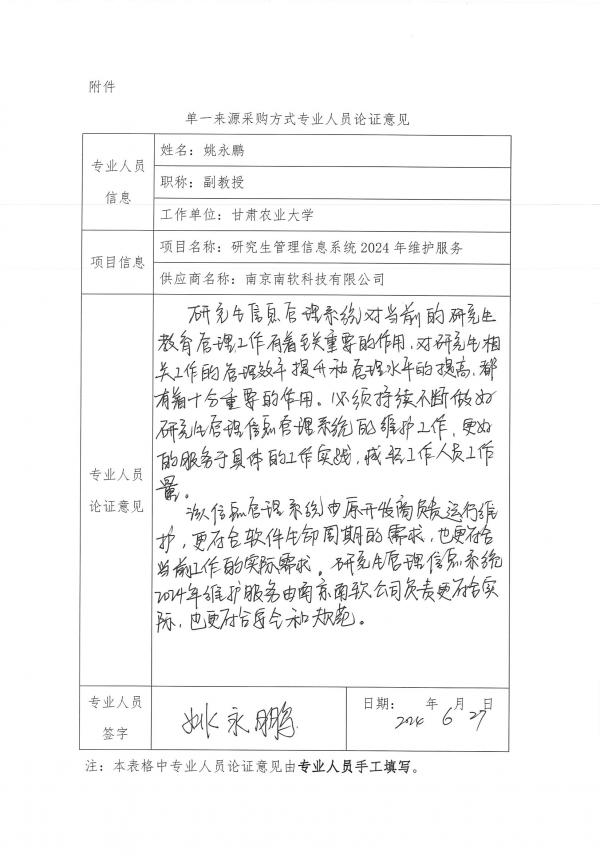 附件
单一来源采购方式专业人员论证意见
专业人员
信息
姓名：姚永鹏
职称：副教授
工作单位：甘肃农业大学
项目信息
项目名称：研究生管理信息系统2024年维护服务
供应商名称：南京南软科技有限公司
专业人员
论证意见
研究生信息管理系统对当前的研究生
教育管理工作有着至关重要的作用，对研究生相
关工作的管理效率提升和管理水平的提高，都
有着十分重要的作用。必须持续不断做好
研究生管理信息管理系统的维护工作，更好
的服务于具体的工作实践，减轻工作人员工作
量。
该信息管理系统由原开发商负责运行维
护，更符合软件生命周期的需求，也更符合
当前工作的实际需求。研究生管理信息系统
2024年维护服务由南京南软公司负责更符合实
际，也更符合和规范。
专业人员
签字
姚永鹏
日期： 年 月 日
2024 6 27
注：本表格中专业人员论证意见由专业人员手工填写。